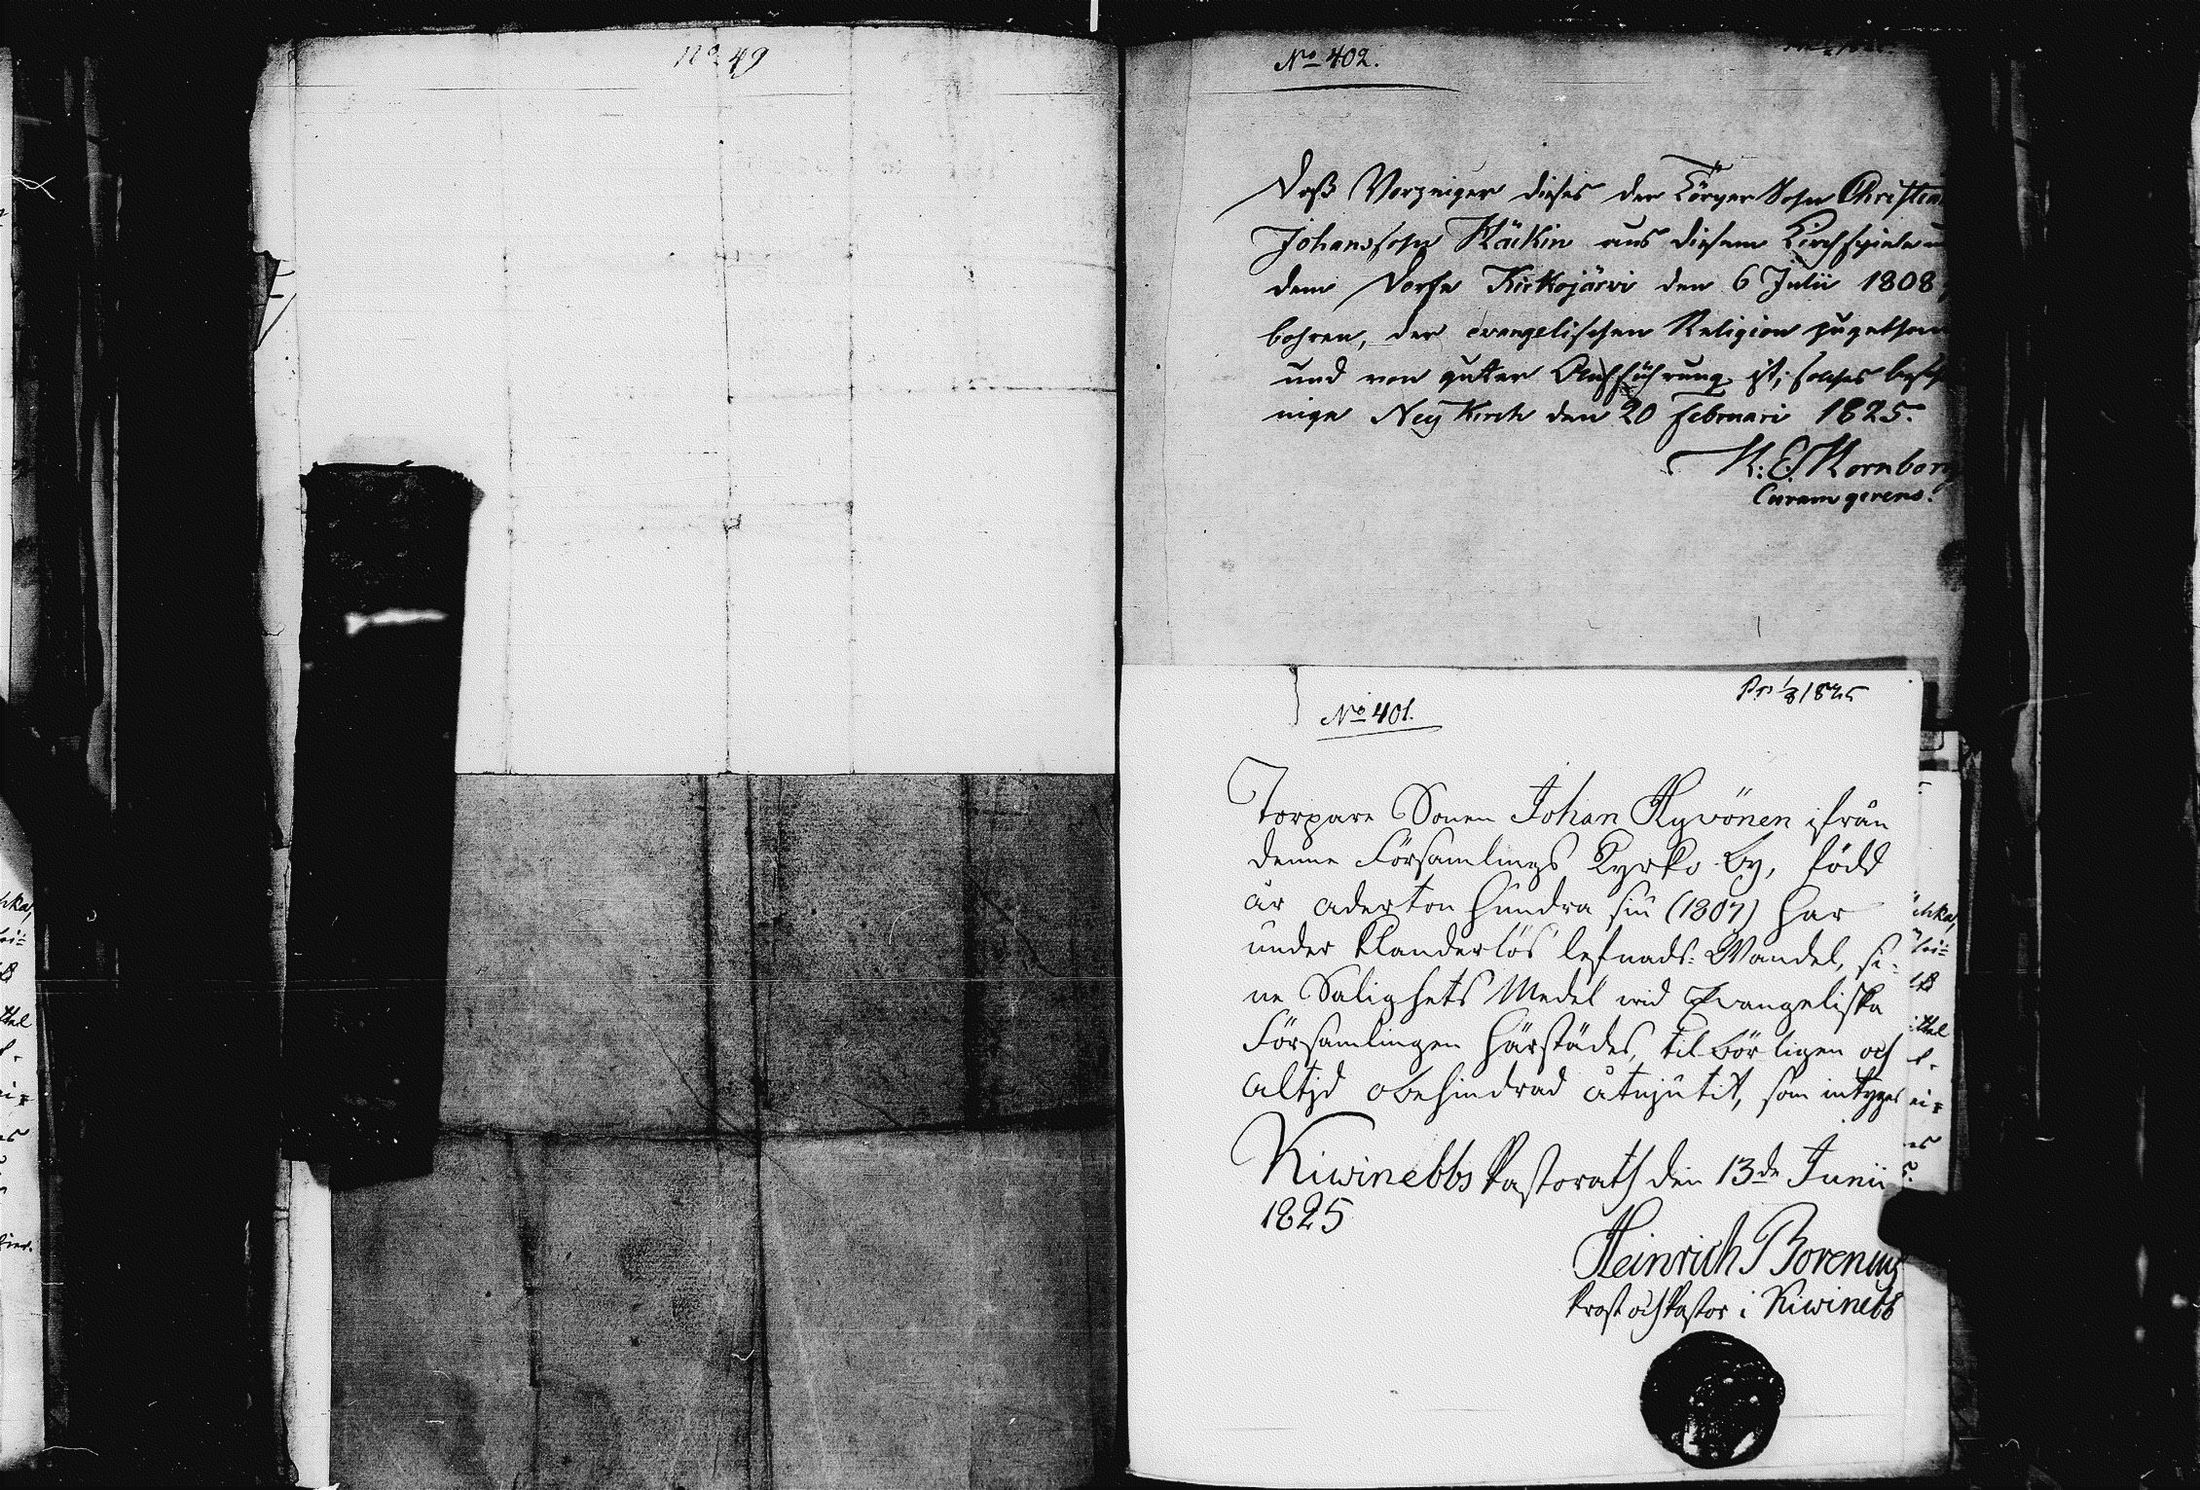 No 49
No 402.
Daß Vorzeiger dieses der Sohn Christian
Johansohn Räikin aus diesem Kirchspiele
dem Dorfe Kirkojärvi den 6 Julii 1808
bohren, der evangelischen Religion zugethan
und von guter Aufführung ist, solches beschei
nige NeyKirch den 20 Februari 1825.
K: E: Kornborg
Curam gerens.
Pr 1/8 1825
No 401.
Torpare Sonen Johan Hyvönen ifrån
denne Församlings Kyrko by, född
år aderton hundra siu (1807) har
under klanderlös lefnads: Wandel, si-
ne Salighets Medel wid Evangeliska
Församlingen härstädes, tilbörligen och
altid obehindrad åtnjutit, som intygas
Kiwinebbs Pastorath den 13de Junii
1825
Heinrich Borenius
Prost och Pastor i Kiwinebb